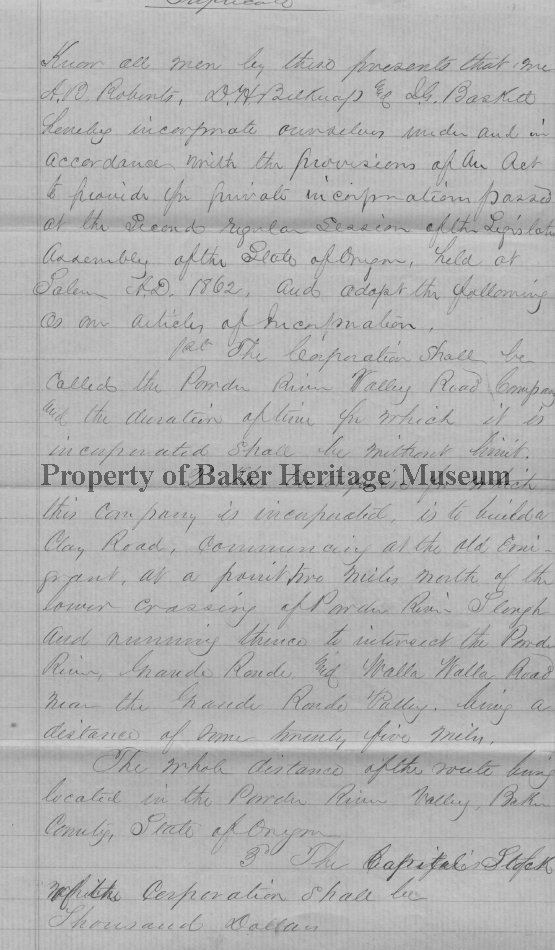 Triplicate
Know all men by these presents that we
A.B. Roberts, D.H. Belknap & I.G. Baskett
hereby incorporate ourselves under and in
accordance with the provisions of An Act
to provide for private incorporations passed
at the second regular Session of the Legislative
Assembly of the State of Oregon, held at
Salem A.D. 1862, And adopt the following
as our articles of Incorporation.
1st The Corporation shall be
called the Powder River Valley Road Company
and the duration of time for which it is
incorporated shall be without limit.
Property of Baker Heritage Museum
which
this Company is incorporated, is to build a
Clay Road, Commencing at the old Emi-
grant, at a point two miles north of the
lower crossing of Powder River Slough
and running thence to intersect the Powder
River, Grande Ronde & Walla Walla Road
near the Grande Ronde Valley. being a
distance of some twenty five miles.
The whole distance of the route being
located in the Powder River Valley, Baker
County, State of Oregon
3d The Capital Stock
of the Corporation shall be
Thousand Dollars